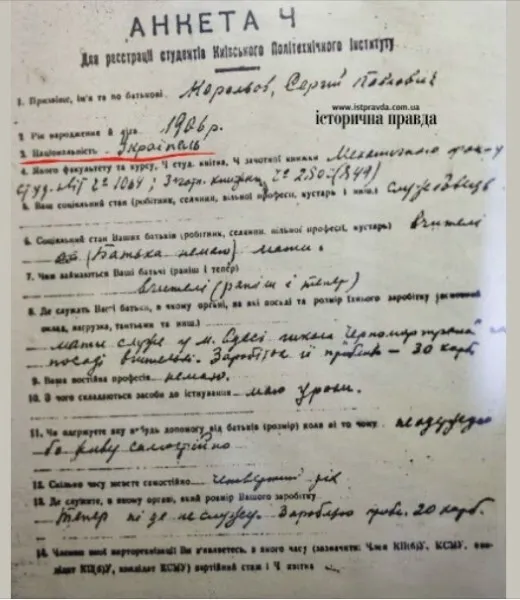 АНКЕТА Ч
Для реєстрації студентів Київського Політехнічного Інституту
1. Прізвище, ім'я та по батькові Корольов, Сергій Павлович
www.istpravda.com.ua
історична правда
2. Рік народження й дата 1906 р.
3. Національність Українець
4. Якого факультету та курсу, Ч студ. квітка, Ч залікової книжки Механичного
студ. № 1064; книжки № 2501
5. Ваш соціяльний стан (робітник, селянин, вільної професії, кустарь і инш.) Службовець
6. Соціяльний стан Ваших батьків (робітник, селянин, вільної професії, кустарь) вчителі
(Батька немаю) мати.
7. Чим займаються Ваші батьки (раніш і тепер)
вчителі (раніш і тепер)
8. Де служать Ваші батьки, в якому органі, на якій посаді та розмір їхнього заробітку
оклад, нагрузка, тантьєми та инш.)
мати служе у м. Одесі школа
посаді вчителькі. Заробіток її приблизно – 30 карб
9. Ваша постійна професія немаю.
10. З чого складаються засоби до існування маю уроки.
11. Чи одержуєте яку небудь допомогу від батьків (розмір) коли ні то чому неодержую
бо живу самостійно
12. Скільки часу живете самостійно четвертий рік
13. Де служите, в якому органі, який розмір Вашого заробітку
Тепер ні де не служу. Заробляю 20 карб.
14. Членом якої парторганізації Ви являєтесь, з якого часу (зазначити: Член КП(б)У, КСМУ,
КП(б)У, кандідат КСМУ) партійний стаж і Ч квітка